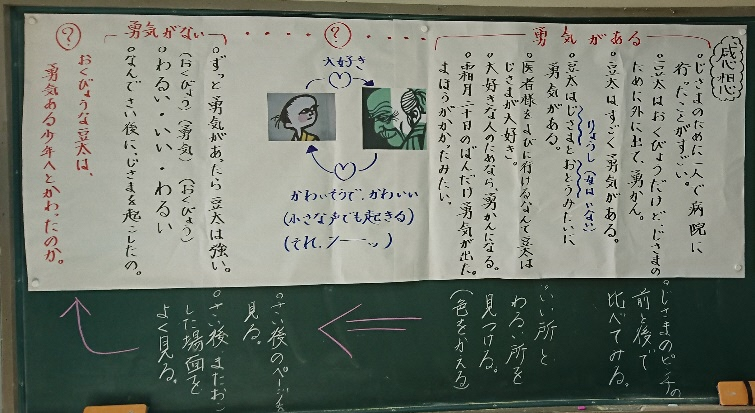 感想
勇気がある
・じさまのために一人で病院に
行ったことがすごい。
・豆太はおくびょうだけど、じさまの
ために外に出て、勇かん。
・豆太はすごく勇気がある。
りょうし(女はいない)
・豆太はじさまとおとうみたいに、
勇気がある。
・医者様をよびに行けるなんて豆太は
じさまが大好き。
・大好きな人のためなら、勇かんになる。
・霜月二十日のばんだけ勇気が出た。
まほうがかかったみたい。
?
大好き
かわいそうで、かわいい
(小さな声でも起きる)
(それ、シーーッ)
勇気がない
・ずっと勇気があったら豆太は強い。
(おくびょう)(勇気)(おくびょう)
・わるい・いい・わるい
・なんでさい後に、じさまを起こしたの。
?
おくびょうな豆太は、
勇気ある少年へとかわったのか。
・じさまのピンチの
前と後で
比べてみる。
・いい所と
わるい所を
見つける。
(色をかえる)
・さい後のページを
見る。
・さい後、またおこ
した場面を
よく見る。